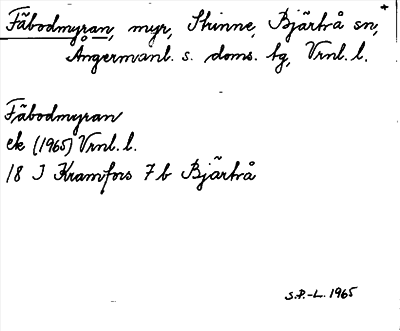 Fäbodmyran, myr, Skinne, Bjärtrå sn,
Ångermanl. s. doms. tg, Vrnl. l.
Fäbodmyran
ek (1965) Vrnl. l.
18 J Kramfors 7 b Bjärtrå
S.P.-L. 1965